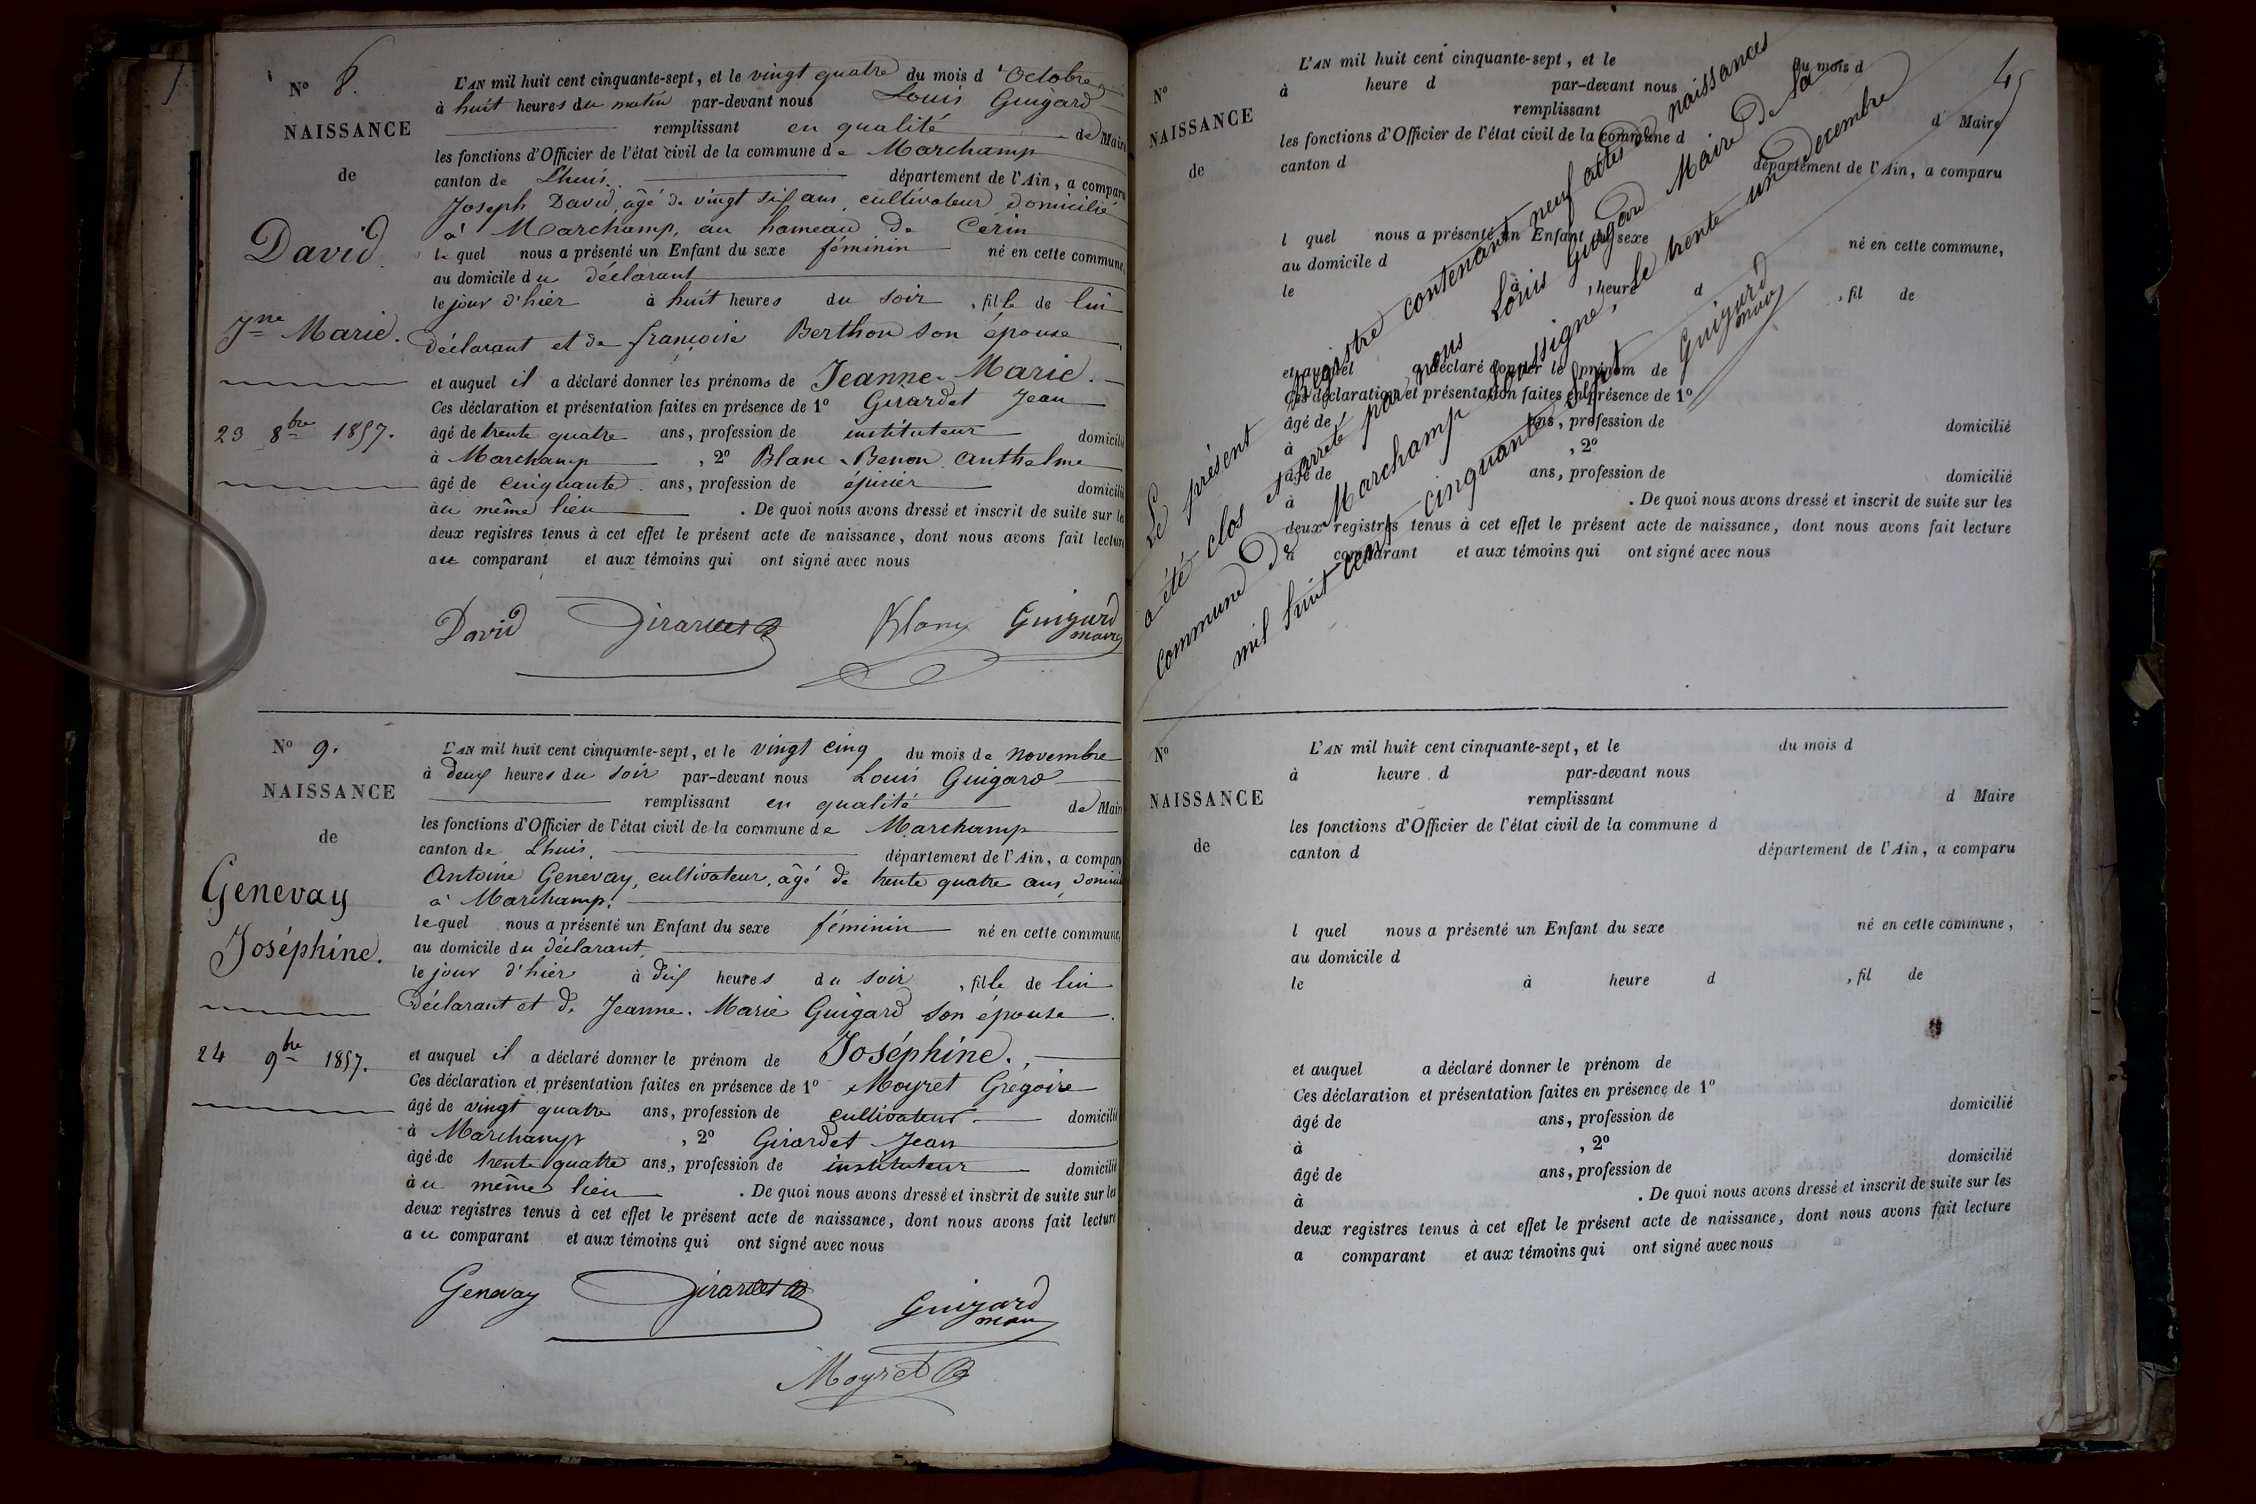 N° 8.
NAISSANCE
de
David
Jne Marie.
23 8bre 1857.
L'AN mil huit cent cinquante-sept, et le vingt quatre du mois d'Octobre
à huit heures du matin par-devant nous Louis Guigard
remplissant en qualité de Maire
les fonctions d'Officier de l'état civil de la commune de Marchamp
canton de Lhuis. département de l'Ain, a comparu
Joseph David, âgé de vingt six ans, cultivateur domicilié
à Marchamp, au hameau de Cerin
lequel nous a présenté un Enfant du sexe féminin né en cette commune,
au domicile du déclarant
le jour d'hier à huit heures du soir, fille de lui
déclarant et de françoise Berthon son épouse
et auquel il a déclaré donner les prénoms de Jeanne-Marie.
Ces déclaration et présentation faites en présence de 1° Girardet Jean
âgé de trente quatre ans, profession de instituteur domicilié
à Marchamp, 2° Blanc-Benon Anthelme
âgé de cinquante ans, profession de épicier domicilié
au même lieu. De quoi nous avons dressé et inscrit de suite sur les
deux registres tenus à cet effet le présent acte de naissance, dont nous avons fait lecture
au comparant et aux témoins qui ont signé avec nous
David Girardet Blanc Guigard
maire
N° 9.
NAISSANCE
de
Genevay
Joséphine.
24 9bre 1857.
L'AN mil huit cent cinquante-sept, et le vingt cinq du mois de novembre
à deux heures du soir par-devant nous Louis Guigard
remplissant en qualité de Maire
les fonctions d'Officier de l'état civil de la commune de Marchamp
canton de Lhuis. département de l'Ain, a comparu
Antoine Genevay, cultivateur, âgé de trente quatre ans, domicilié
à Marchamp.
lequel nous a présenté un Enfant du sexe féminin né en cette commune,
au domicile du déclarant
le jour d'hier à dix heures du soir, fille de lui
déclarant et de Jeanne-Marie Guigard son épouse.
et auquel il a déclaré donner le prénom de Joséphine.
Ces déclaration et présentation faites en présence de 1° Moyret Grégoire
âgé de vingt quatre ans, profession de cultivateur domicilié
à Marchamp, 2° Girardet Jean
âgé de trente quatre ans, profession de instituteur domicilié
au même lieu. De quoi nous avons dressé et inscrit de suite sur les
deux registres tenus à cet effet le présent acte de naissance, dont nous avons fait lecture
au comparant et aux témoins qui ont signé avec nous
Genevay Girardet Guigard
maire
Moyret
45
N°
NAISSANCE
de
L'AN mil huit cent cinquante-sept, et le du mois d
à heure d par-devant nous
remplissant d Maire
les fonctions d'Officier de l'état civil de la commune d
canton d département de l'Ain, a comparu
l quel nous a présenté un Enfant du sexe né en cette commune,
au domicile d
le à heure d, fil de
et auquel a déclaré donner le prénom de
Ces déclaration et présentation faites en présence de 1°
âgé de ans, profession de domicilié
à, 2°
âgé de ans, profession de domicilié
à. De quoi nous avons dressé et inscrit de suite sur les
deux registres tenus à cet effet le présent acte de naissance, dont nous avons fait lecture
a comparant et aux témoins qui ont signé avec nous
Le présent registre contenant neuf actes de naissances
a été clos et arrêté par nous Louis Guigard Maire de la
commune de Marchamp soussigné, le trente un decembre
mil huit cent cinquante sept
Guigard
maire
N°
NAISSANCE
de
L'AN mil huit cent cinquante-sept, et le du mois d
à heure d par-devant nous
remplissant d Maire
les fonctions d'Officier de l'état civil de la commune d
canton d département de l'Ain, a comparu
l quel nous a présenté un Enfant du sexe né en cette commune,
au domicile d
le à heure d, fil de
et auquel a déclaré donner le prénom de
Ces déclaration et présentation faites en présence de 1°
âgé de ans, profession de domicilié
à, 2°
âgé de ans, profession de domicilié
à. De quoi nous avons dressé et inscrit de suite sur les
deux registres tenus à cet effet le présent acte de naissance, dont nous avons fait lecture
a comparant et aux témoins qui ont signé avec nous